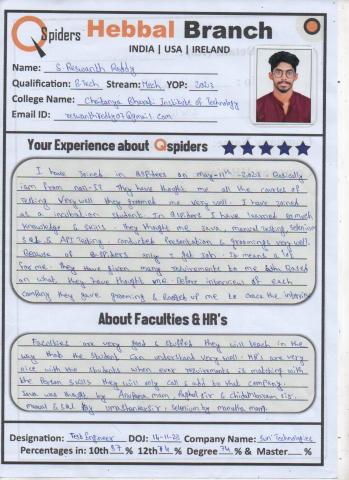 Qspiders Hebbal Branch
INDIA | USA | IRELAND
Name: S. Reswanth Reddy
Qualification: B-Tech Stream: Mech YOP: 2023
College Name: Chaitanya Bharati Institute of Technology
Email ID: reswanthreddy07@gmail.com
Your Experience about Qspiders
I have Joined in QSpiders on may-11th-2023. Basically
iam from non-IT they have thaught me all the courses of
Testing very well they groomed me very well. I have joined
as a incubation student. In QSpiders I have learned so much
knowledge & skills. they thaught me Java, manual testing, selenium
SQL & API Testing conducted presentation & groomings very well.
Because of QSpiders only I got Job. It means a lot
for me. they have given many requirements to me Based
on what they have thaught me. Before interviews of each
company they gave grooming & up me to crack the
About Faculties & HR's
Faculties are very good & they will teach in the
way that the student can understand very well. HR's are very
nice with the students when ever requirements is matching with
the skills they will only call & add to that company.
Java was thaught by mam, sir & sir.
manual & SQL by sir, selenium by mam.
Designation: Test Engineer DOJ: 14-11-23 Company Name: Sun Technologies
Percentages in: 10th 87 % 12th % Degree 74 % & Master %